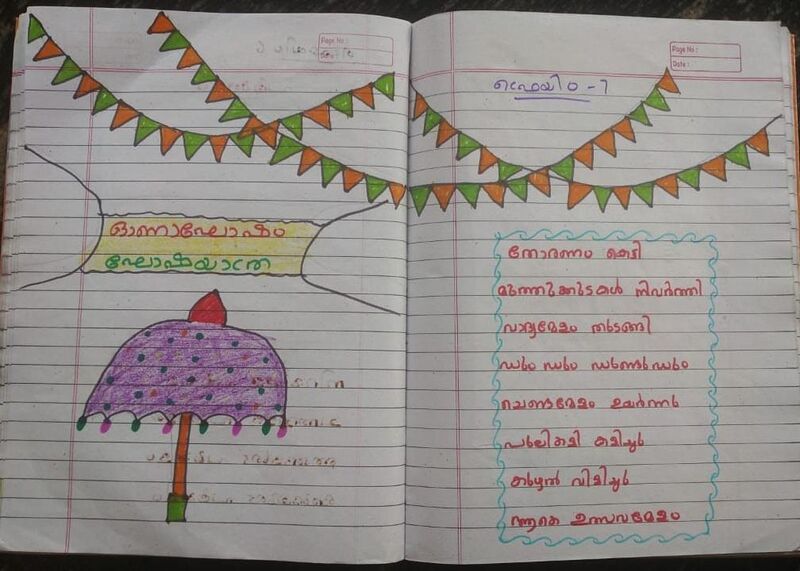 Page No :
Date :
ഓണാഘോഷം
ഘോഷയാത്ര
Page No :
Date :
ഫ്രെയിം -1
തോരണം കെട്ടി
മുത്തുക്കുടകൾ നിവർത്തി
വാദ്യമേളം തുടങ്ങി
ഡും ഡും ഡുണ്ടുഡും
ചെണ്ടമേളം ഉയർന്നു
പുലികളി കളിച്ചു
കുഴൽ വിളിച്ചു
ആകെ ഉത്സവമേളം